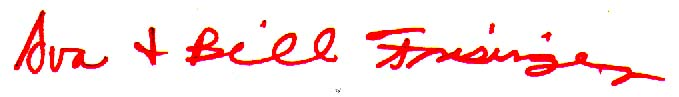 Ava & Bill Frisinger